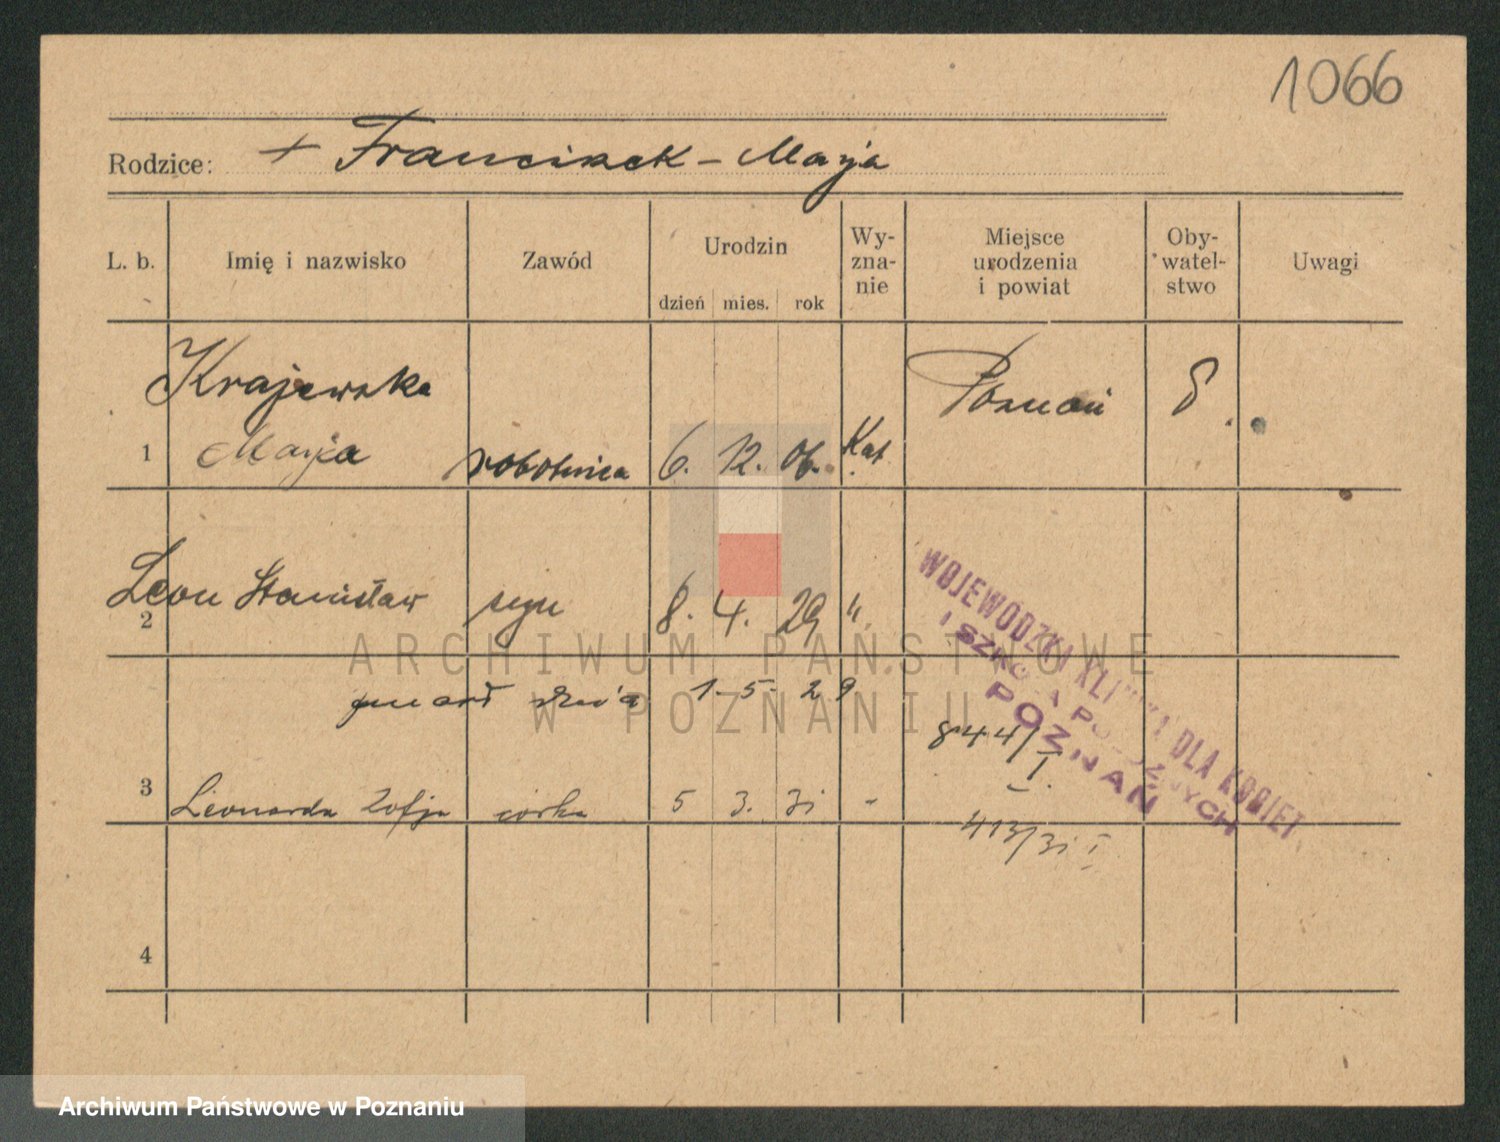 1066
Rodzice: + Franciszek - Marja
L. b. Imię i nazwisko Zawód Urodzin dzień mies. rok Wy- zna- nie Miejsce urodzenia i powiat Oby- watel- stwo Uwagi
Krajewska Poznań
1 Marja robotnica 6. 12. 06. Kat.
2 Leon Stanisław syn 8. 4. 29 ".
WOJEWÓDZKA KLINIKA DLA KOBIET
I SZKOŁA POŁOŻNYCH
POZNAŃ
umarł dnia 1-5-29
844/I.
3 Leonarda Zofja córka 5 3. 31 -
413/31 I
4
ARCHIWUM PAŃSTWOWE
W POZNANIU
Archiwum Państwowe w Poznaniu